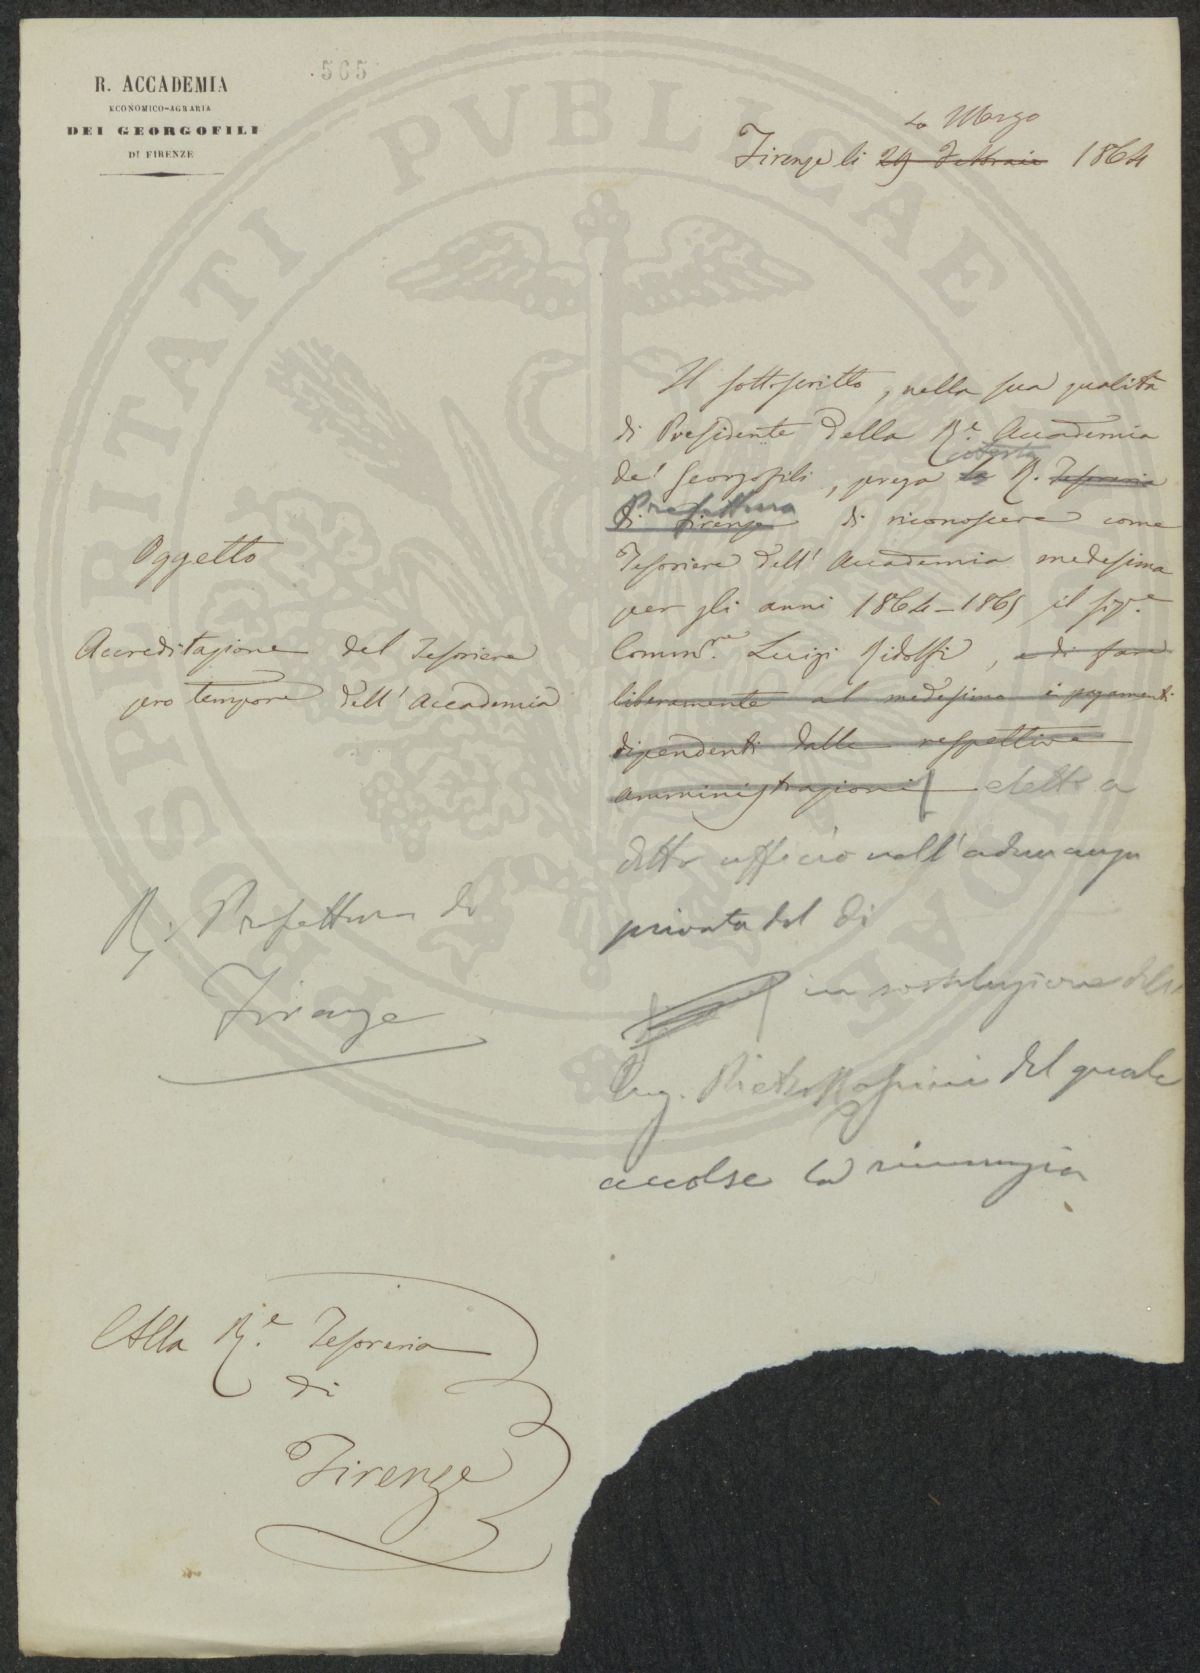 R. ACCADEMIA
ECONOMICO-AGRARIA
DEI GEORGOFILI
DI FIRENZE
565
4 Marzo
Firenze li 29 Febbraio 1864
Il sottoscritto, nella sua qualità
di Presidente della R.e Accademia
codesta
de' Georgofili, prega la R. Tesoreria
Prefettura
di Firenze di riconoscere come
Tesoriere dell' Accademia medesima
per gli anni 1864-1865 il sigr.e
Commre. Luigi Ridolfi, e di fare
liberamente al medesimo i pagamenti
dipendenti dalle respettive
amministrazioni eletto a
detto ufficio nell'adunanza
privata del di
in sostituzione dell'
Ing. Pietro del quale
accolse la rinunzia
Oggetto
Accreditazione del Tesoriere
pro tempore dell' Accademia
R. Prefettura di
Firenze
Alla R.e Tesoreria
di
Firenze
PROSPERITATI PUBLICAE AUGENDAE